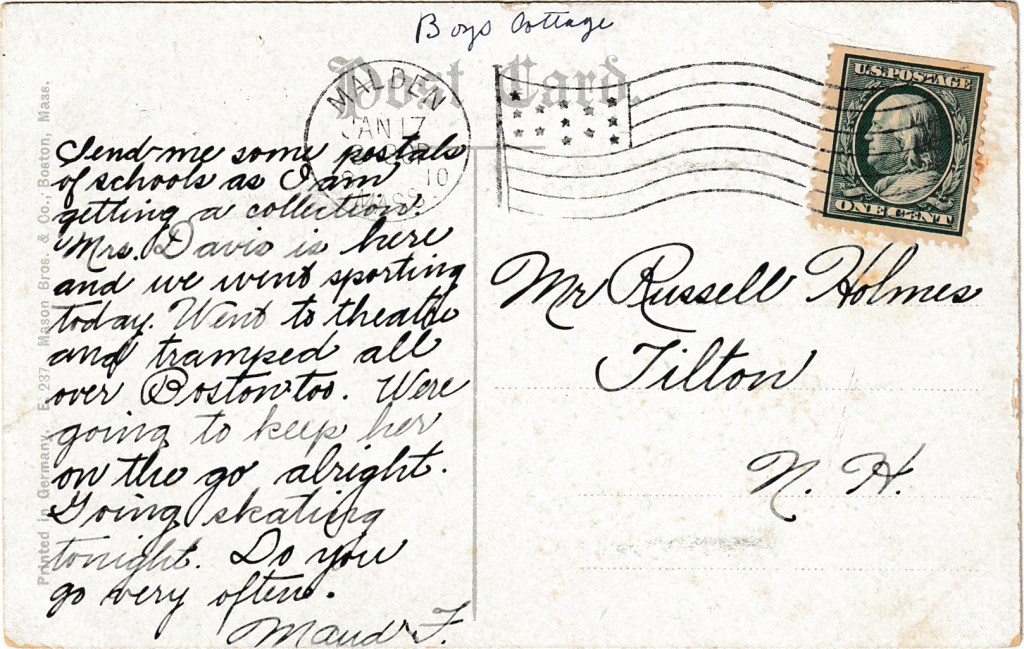 Boys Cottage
Post Card.
U.S. POSTAGE
ONE CENT
MALDEN
JAN 17
10
MASS.
Send me some postals
of schools as I am
getting a collection.
Mrs. Davis is here
and we went sporting
today. Went to theatre
and tramped all
over Boston too. Were
going to keep her
on the go alright.
Going skating
tonight. Do you
go very often.
Maud F.
Mr Russell Holmes
Tilton
N. H.
Printed in Germany. E 237 Mason Bros. & Co., Boston, Mass.